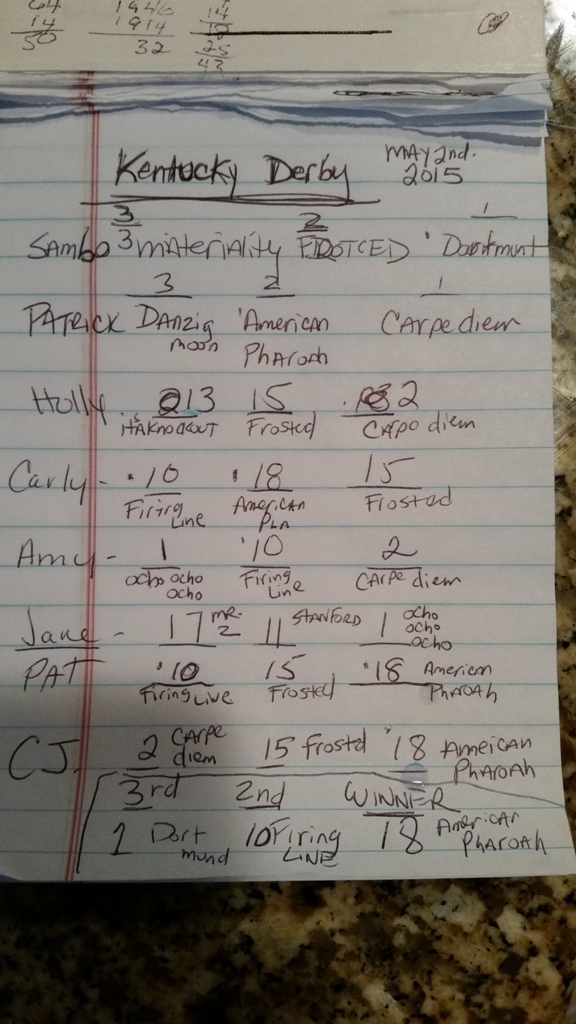 64 1946 14
14 1914 18
50 32 25
43
Kentucky Derby MAY 2nd. 2015
3 2 1
SAMBO 3 miateriality FROTCED Dortmunt
3 2 1
PATRICK DANzig moon American PhAroah CArpe diem
Holly 13 15 2
itsAKnockOUT Frosted CArpo diem
Carly - 10 18 15
Firing Line American PhA Frosted
Amy - 1 10 2
ocho ocho ocho Firing Line CArpe diem
Jane - 17 MR. 2 11 STANFORD 1 ocho ocho ocho
PAT 10 15 18 American PhAroAh
Firing Live Frosted
CJ. 2 CArpe diem 15 Frostd 18 AmeiCAn PhAROAh
3rd 2nd WINNER
1 Dort mund 10 Firing LINE 18 AmericAn PhAroAh